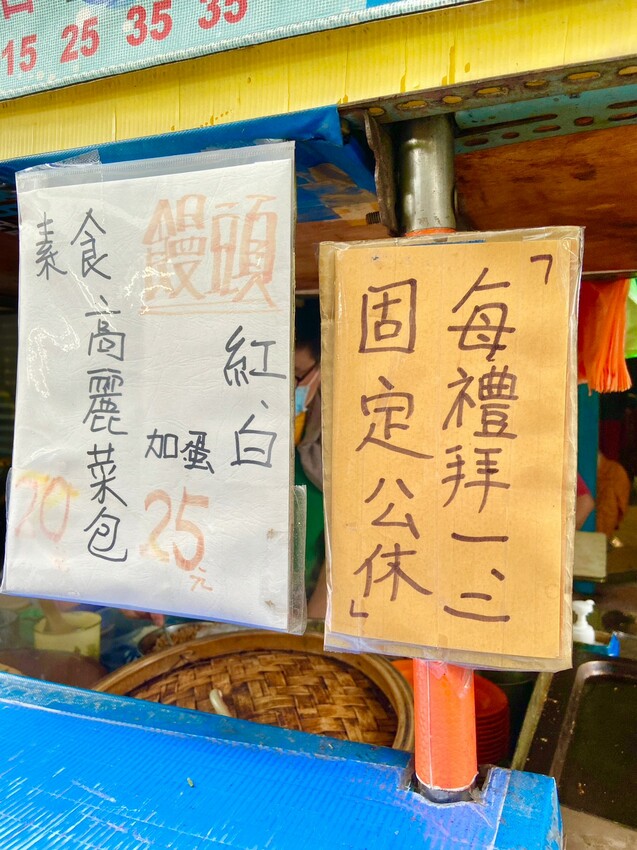 15 25 35 35
饅頭
紅、白
加蛋
25元
素食
高麗菜包
20元
「每禮拜一、二
固定公休」